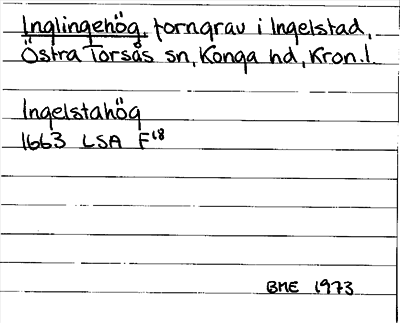 Inglingehög, forngrav i Ingelstad,
Östra Torsås sn, Konga hd, Kron.l.
Ingelstahög
1663 LSA F18
BME 1973